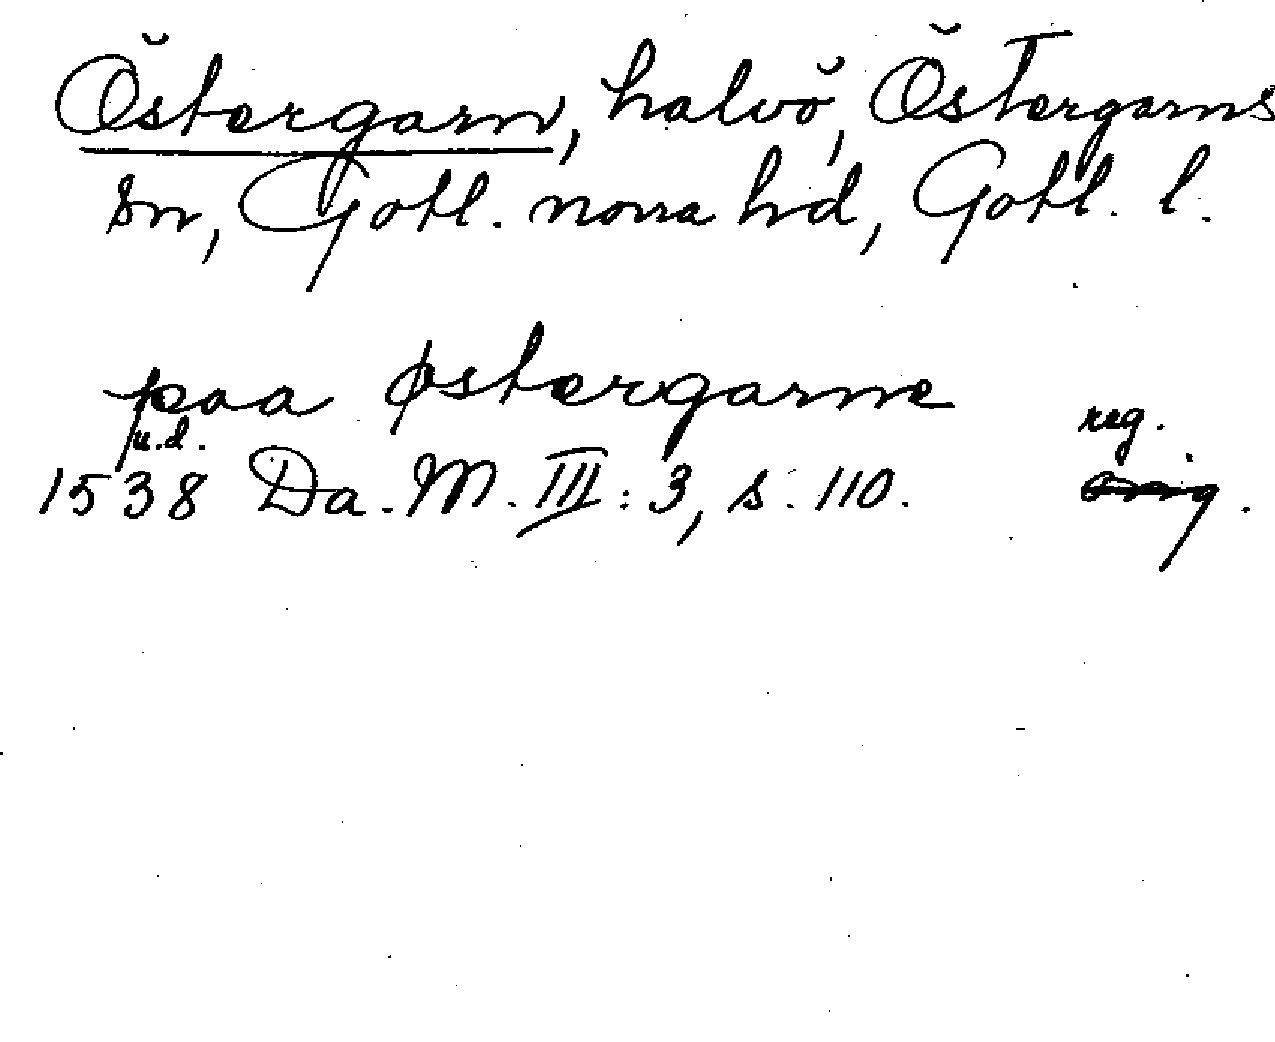 Östergarn, halvö, Östergarns
sn, Gotl. norra hd, Gotl. l.
paa østergarne
u.d.
reg.
1538 Da. M. III: 3, s. 110. orig.